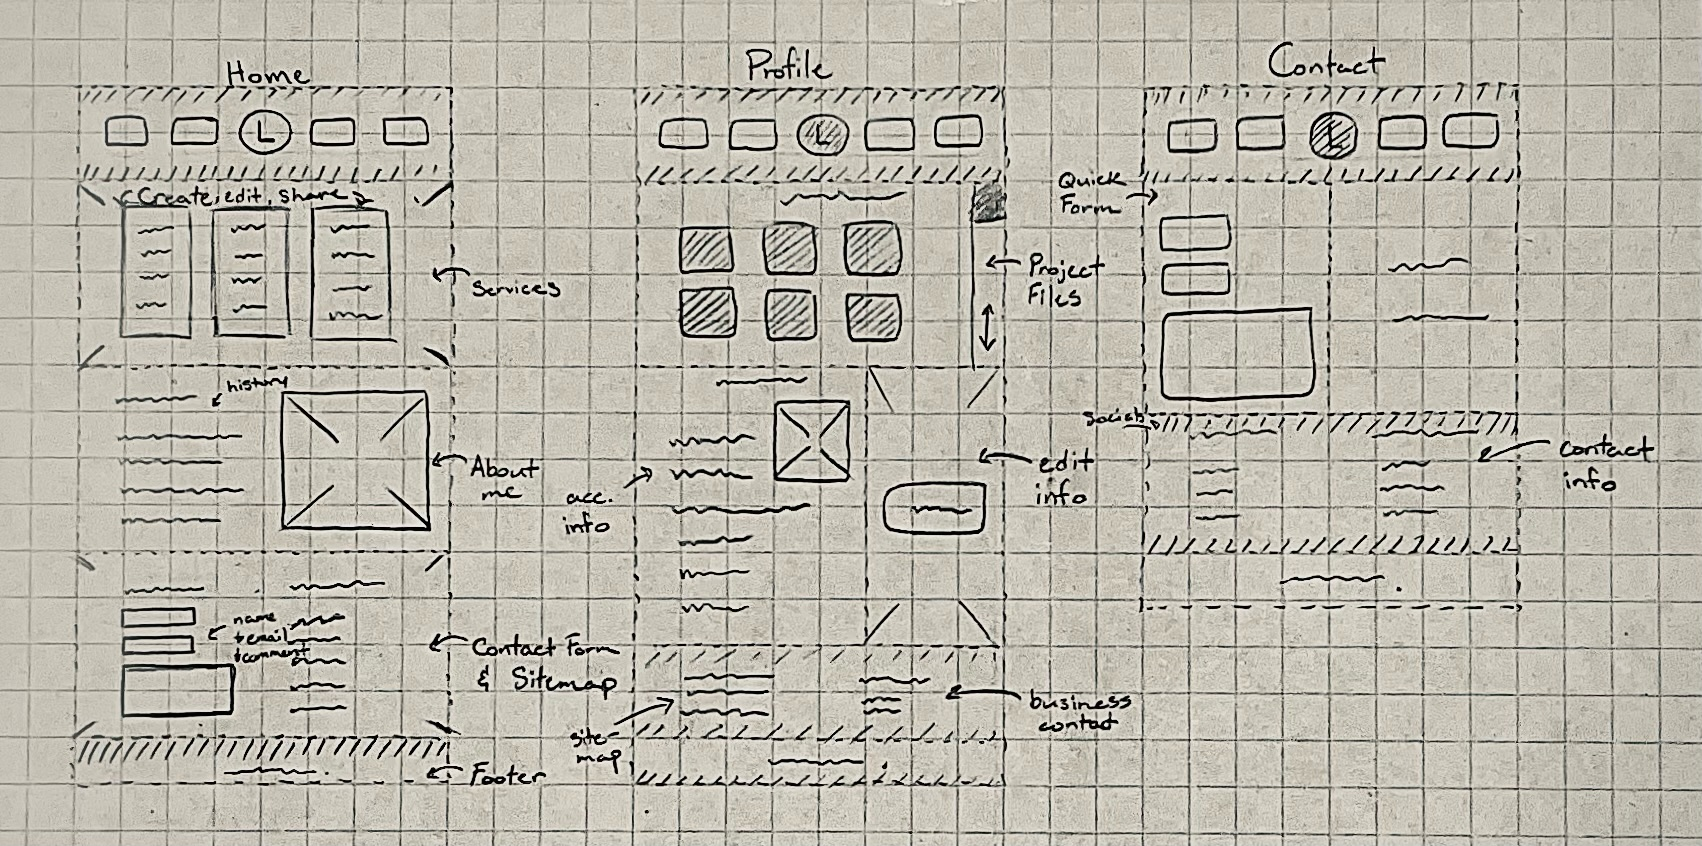 Home
L
Create, edit, share
Services
history
About
me
name
+ email
+ comment
Contact Form
& Sitemap
Footer
Profile
L
Project
Files
acc.
info
edit
info
site-
map
business
contact
Contact
L
Quick
Form
Socials
contact
info